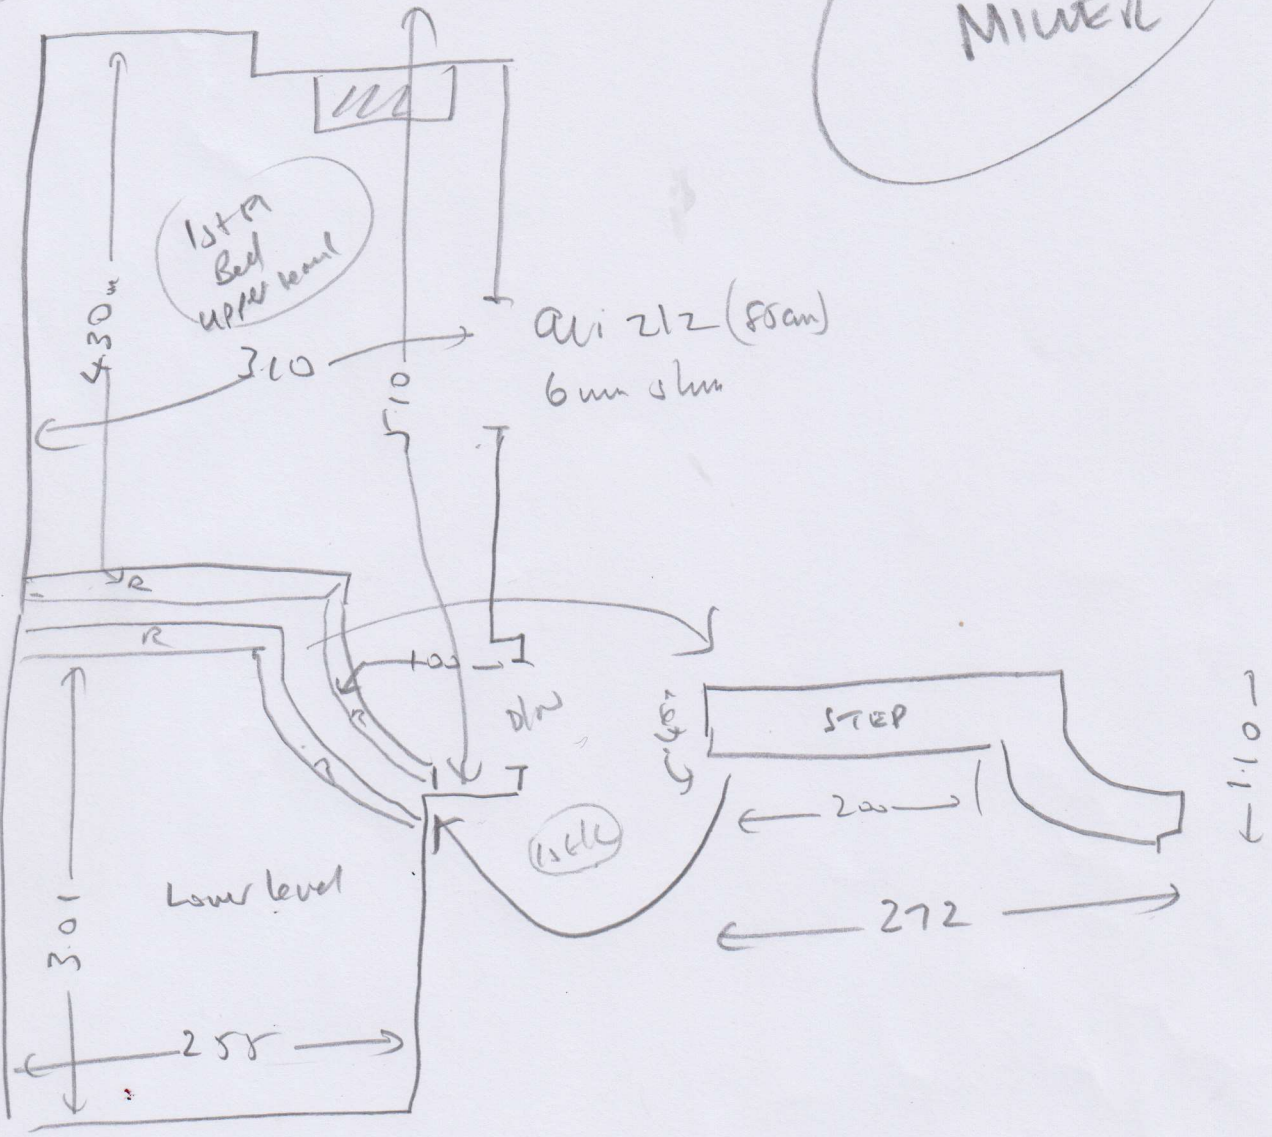 MILLER
1st Fl
Bed
upper level
4.30m
3.10
5.10
212
6mm
R
R
100
R
R
D/W
STEP
200
1.10
272
Lower level
3.01
255